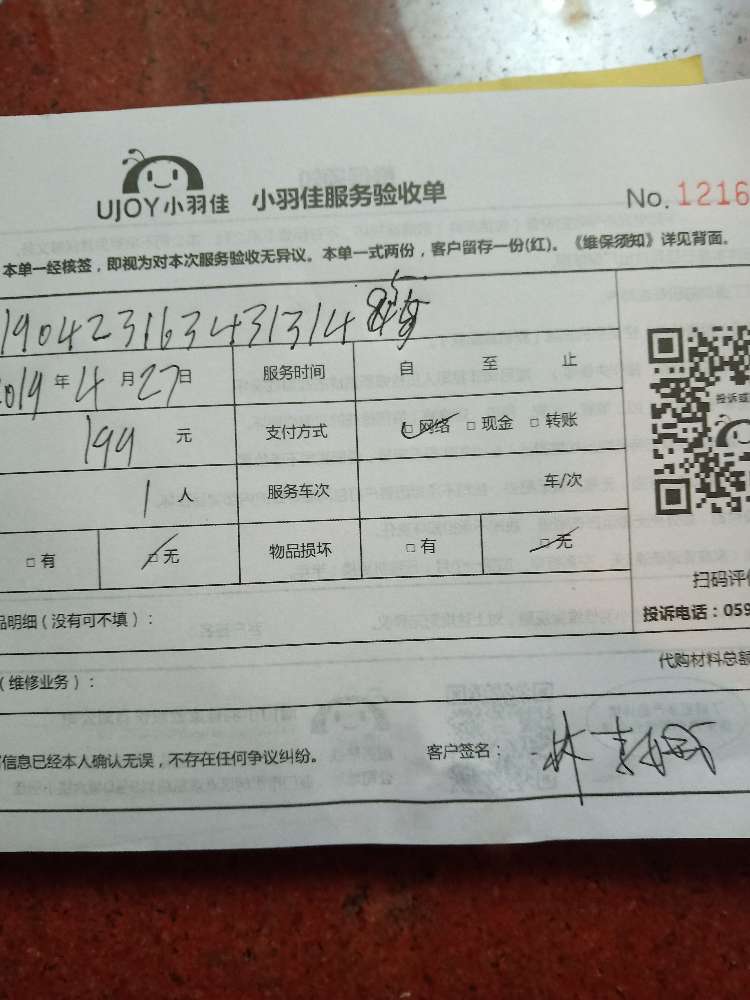 UJOY小羽佳 小羽佳服务验收单 No. 1216
本单一经核签，即视为对本次服务验收无异议。本单一式两份，客户留存一份(红)。《维保须知》详见背面。
190423163431314
2019 年 4 月 27 日 服务时间 自 至 止
199 元 支付方式 □ 网络 □ 现金 □ 转账
投诉或
1 人 服务车次 车/次
□ 有 □ 无 物品损坏 □ 有 □ 无
扫码评价
品明细（没有可不填）：
投诉电话：059
代购材料总额
（维修业务）：
信息已经本人确认无误，不存在任何争议纠纷。 客户签名：